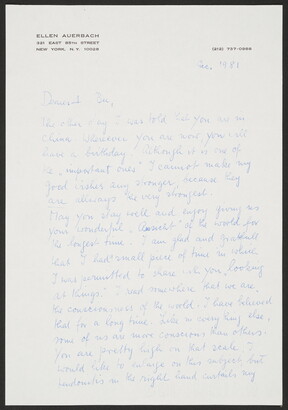 ELLEN AUERBACH
321 EAST 85TH STREET
NEW YORK, N.Y. 10028
(212) 737-0886
Dec. 1981
Dearest
the other day I was told that you are in
China. Wherever you are now, you will
have a birthday. Although it is one of
the "important ones" I cannot make my
good wishes any stronger, because they
are always the very strongest.
May you stay well and enjoy giving us
your wonderful of the world for
the longest time. I am glad and
that I had small of time in which
I was permitted to share with you, looking
at things. I read somewhere that we are
the consciousness of the world. I have believed
that for a long time. Like in everything else,
some of us are more conscious than others.
You are pretty high on that scale. I
would like to enlarge on this subject but
tendonitis in the right hand curtails my